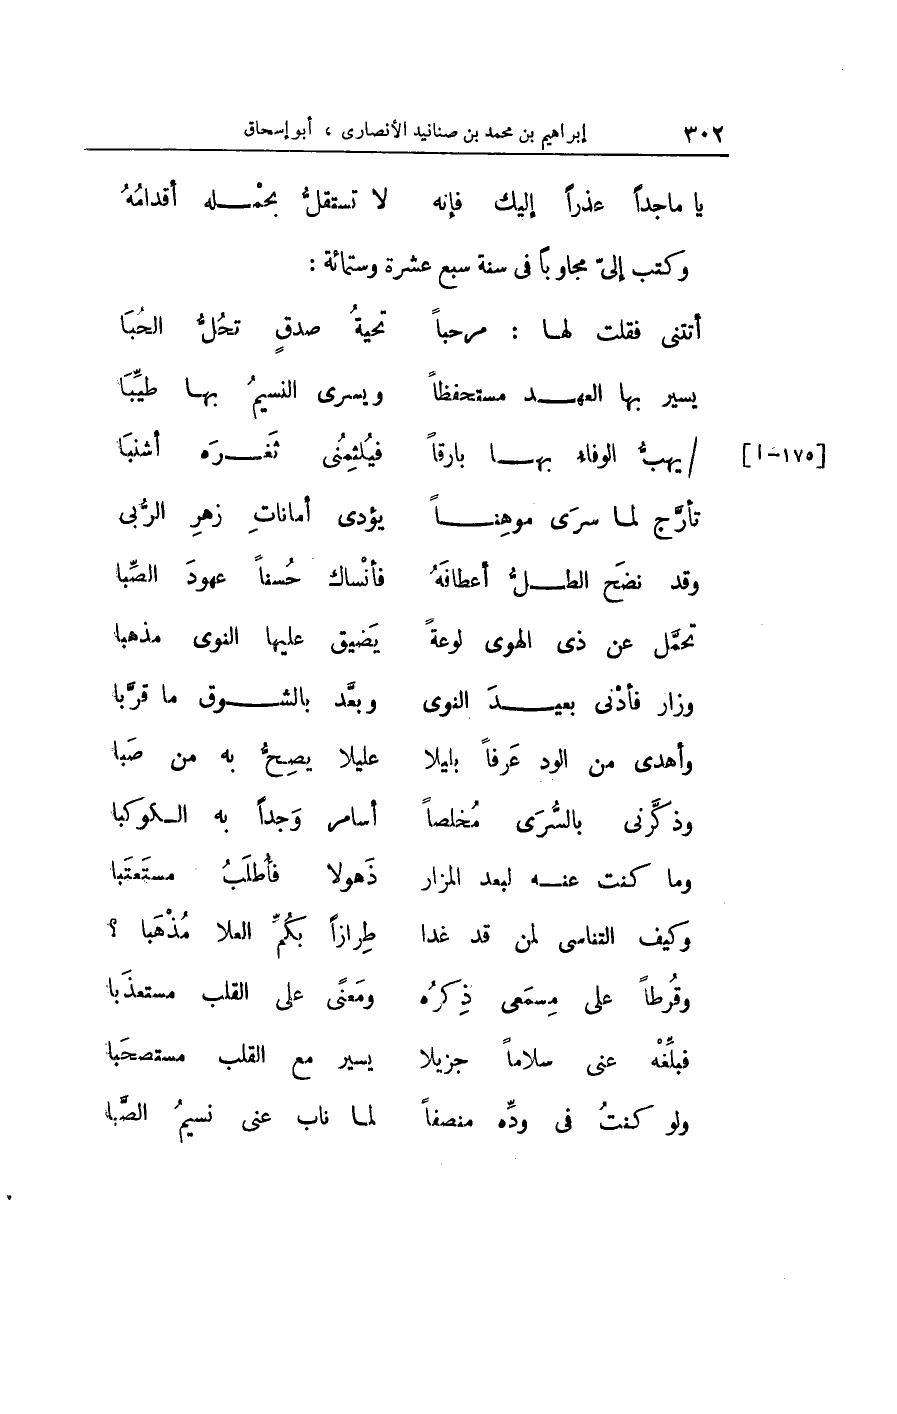 ٣٠٢ إبراهيم بن محمد بن صنانيد الأنصارى ، أبو إسحاق
يا ماجداً عذراً إليك فإنه لا تستقلُّ بحمْـــله أقدامُهُ
وكتب إلىّ مجاوباً فى سنة سبع عشرة وستمائة :
أتتنى فقلت لهـا : مرحباً تحيةُ صدقٍ تحُلُّ الحُبَا
يسير بها العهــد مستحفظاً ويسرى النسيمُ بهـا طيِّبَا
[١٧٥-ا] / يهبُّ الوفاء بهــا بارقاً فيُلثِمُنى ثَغــرَه أشنبَا
تأرَّج لما سرَى موهِنــاً يؤدى أماناتِ زهرِ الرُّبى
وقد نضَح الطــلُّ أعطافَهُ فأنْساك حُسناً عهودَ الصِّبا
تحمَّل عن ذى الهوى لوعةً يَضيق عليها النوى مذهبا
وزار فأدْنى بعيــدَ النوى وبعَّد بالشــوق ما قرَّبا
وأهدى من الود عَرفاً بليلا عليلا يصِحُّ به من صَبا
وذكَّرنى بالسُّرَى مُخلصاً أسامر وَجداً به الـكوكبا
وما كنت عنـه لبعد المزار ذَهولا فأطلَبُ مستَعتَبا
وكيف التناسى لمن قد غدا طِرازاً بكُمِّ العلا مُذْهَبا ؟
وقُرطاً على مِسمَعى ذِكرُه ومَعنًى على القلب مستعذَبا
فبلِّغْه عنى سلاماً جزيلا يسير مع القلب مستصحَبا
ولو كنتُ فى ودِّه منصفاً لمـا ناب عنى نسيمُ الصَّبا